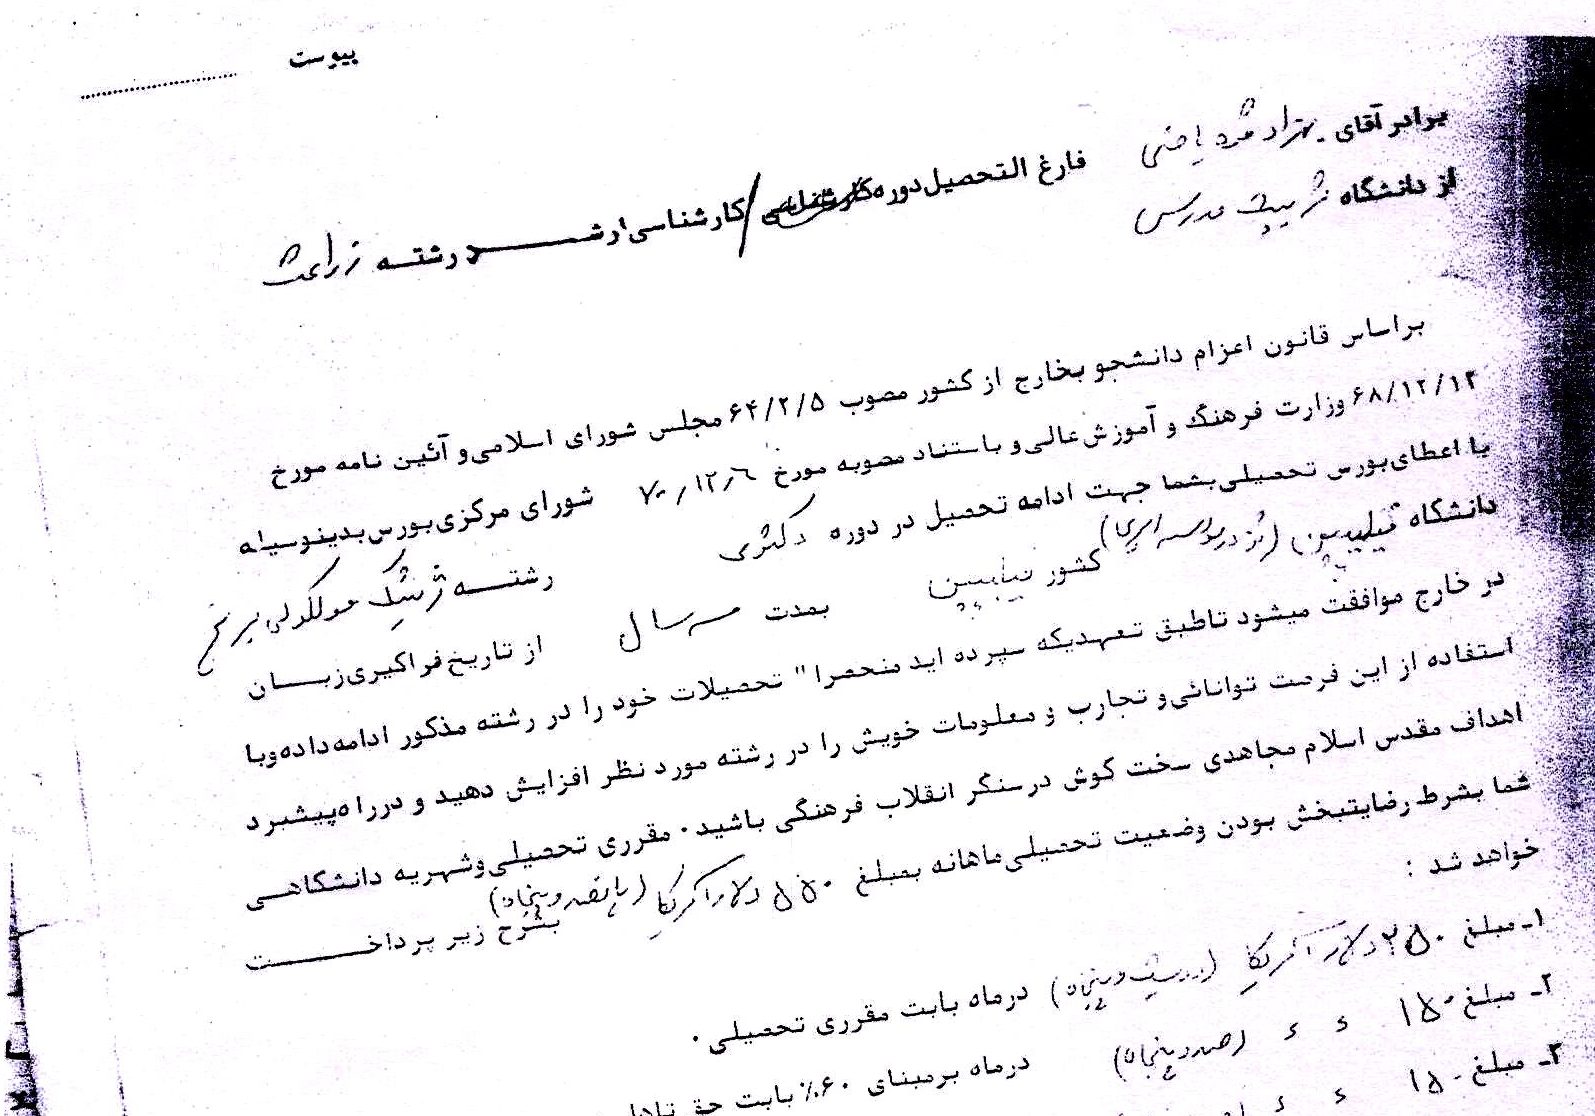 پیوست
برادر آقای بهزاد قره یاضی فارغ التحصیل دوره کارشناسی / کارشناسی ارشد رشته زراعت
از دانشگاه تربیت مدرس
براساس قانون اعزام دانشجو بخارج از کشور مصوب ۶۴/۲/۵ مجلس شورای اسلامی و آئین نامه مورخ
۶۸/۱۲/۱۲ وزارت فرهنگ و آموزش عالی و باستناد مصوبه مورخ ۷۰/۱۲/۶ شورای مرکزی بورس بدینوسیله
با اعطای بورس تحصیلی بشما جهت ادامه تحصیل در دوره دکتری رشته ژنتیک مولکولی برنج
دانشگاه فیلیپین کشور فیلیپین بمدت سه سال از تاریخ فراگیری زبان
در خارج موافقت میشود تا طبق تعهدیکه سپرده اید منحصرا" تحصیلات خود را در رشته مذکور ادامه داده و با
استفاده از این فرصت توانائی و تجارب و معلومات خویش را در رشته مورد نظر افزایش دهید و در راه پیشبرد
اهداف مقدس اسلام مجاهدی سخت کوش در سنگر انقلاب فرهنگی باشید. مقرری تحصیلی و شهریه دانشگاهی
شما بشرط رضایتبخش بودن وضعیت تحصیلی ماهانه بمبلغ ۵۵۰ دلار آمریکا (پانصد و پنجاه) بشرح زیر پرداخت
خواهد شد :
۱- مبلغ ۲۵۰ دلار آمریکا (دویست و پنجاه) در ماه بابت مقرری تحصیلی.
۲- مبلغ ۱۵۰ ء ء (صد و پنجاه) در ماه بر مبنای ۶۰٪ بابت حق
۳- مبلغ ۱۵۰ ء ء